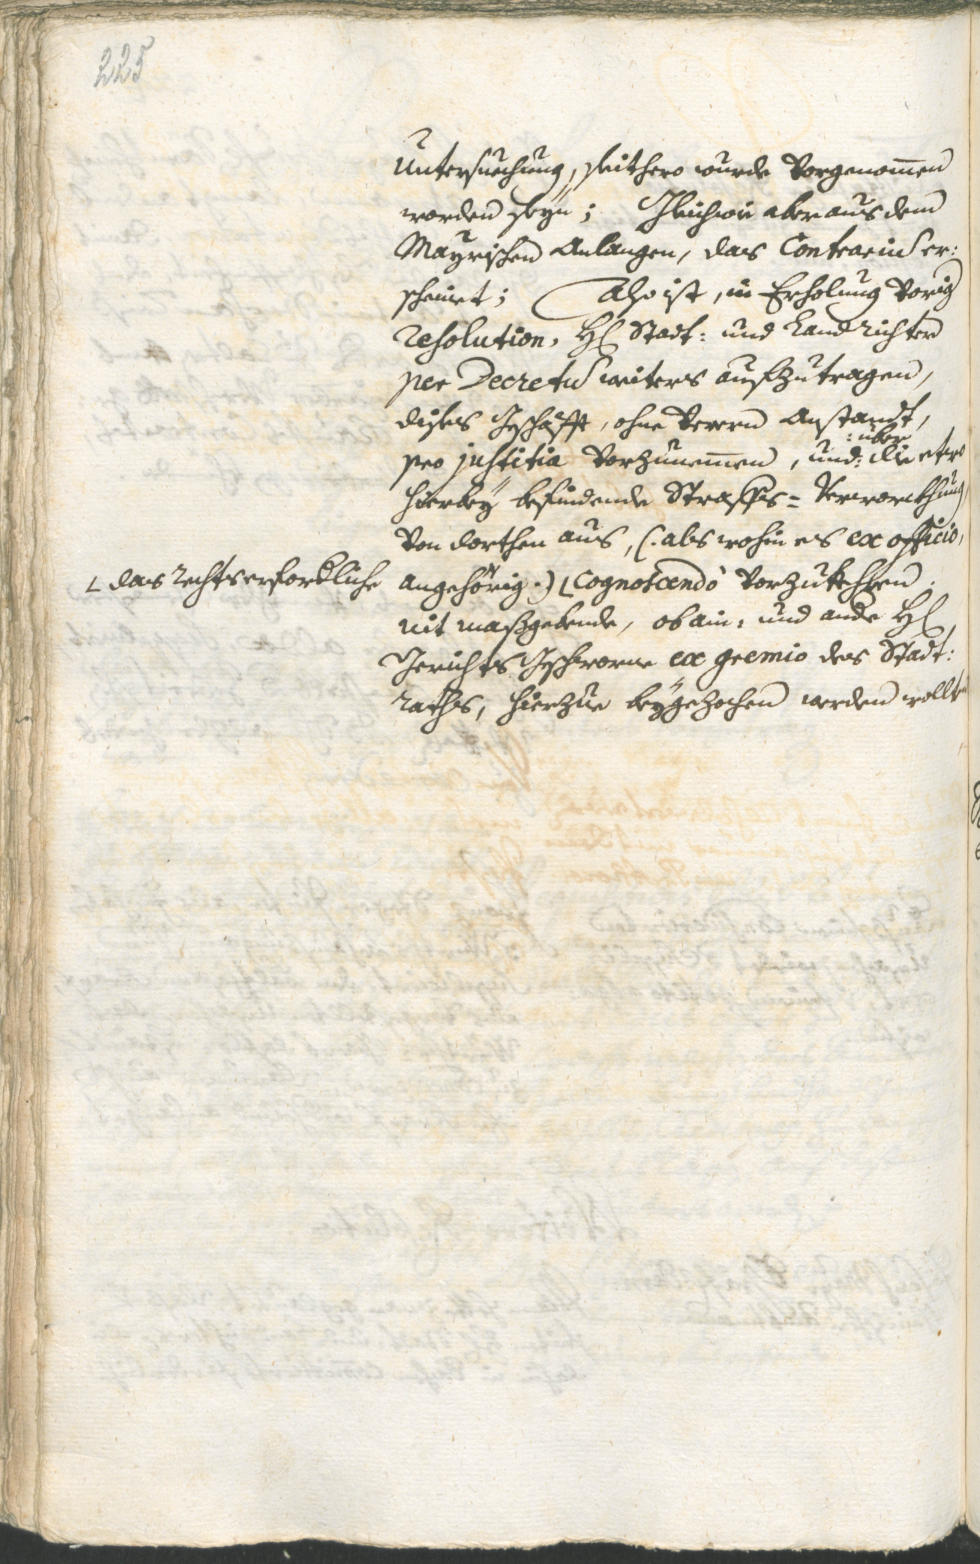 225
Untersuechung, seithero wurde vorgenommen
worden seÿn; Gleichwie aber aus dem
Maÿrischen Anlangen, das Contrarium er:
scheinet; Also ist, in Erholung vorig
resolution, H: Stadt: und Landrichter
per Decretum weiters aufzutragen,
dises Geschäfft, ohne Anstandt,
pro justitia vorzunemmen, und :über: die etwo
hierbeÿ befindende Straffs= Verworckhung
von dorthen aus, (: als wohin es ex officio,
angehörig :) ⌊ cognoscendo vorzukehren.
⌊ das rechtserforderliche
nit massgebende, ob ain: und andre H:
Gerichts Geschworne ex gremio des Stadt:
raths, hierzue beÿgezochen werden wollte